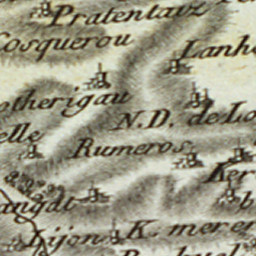 Pratentaiz
Cosquerou
Lanh
otherigau
N.D. de Lo
elle
Rumeros
Ker
angdt
b
Lijon
K. merer